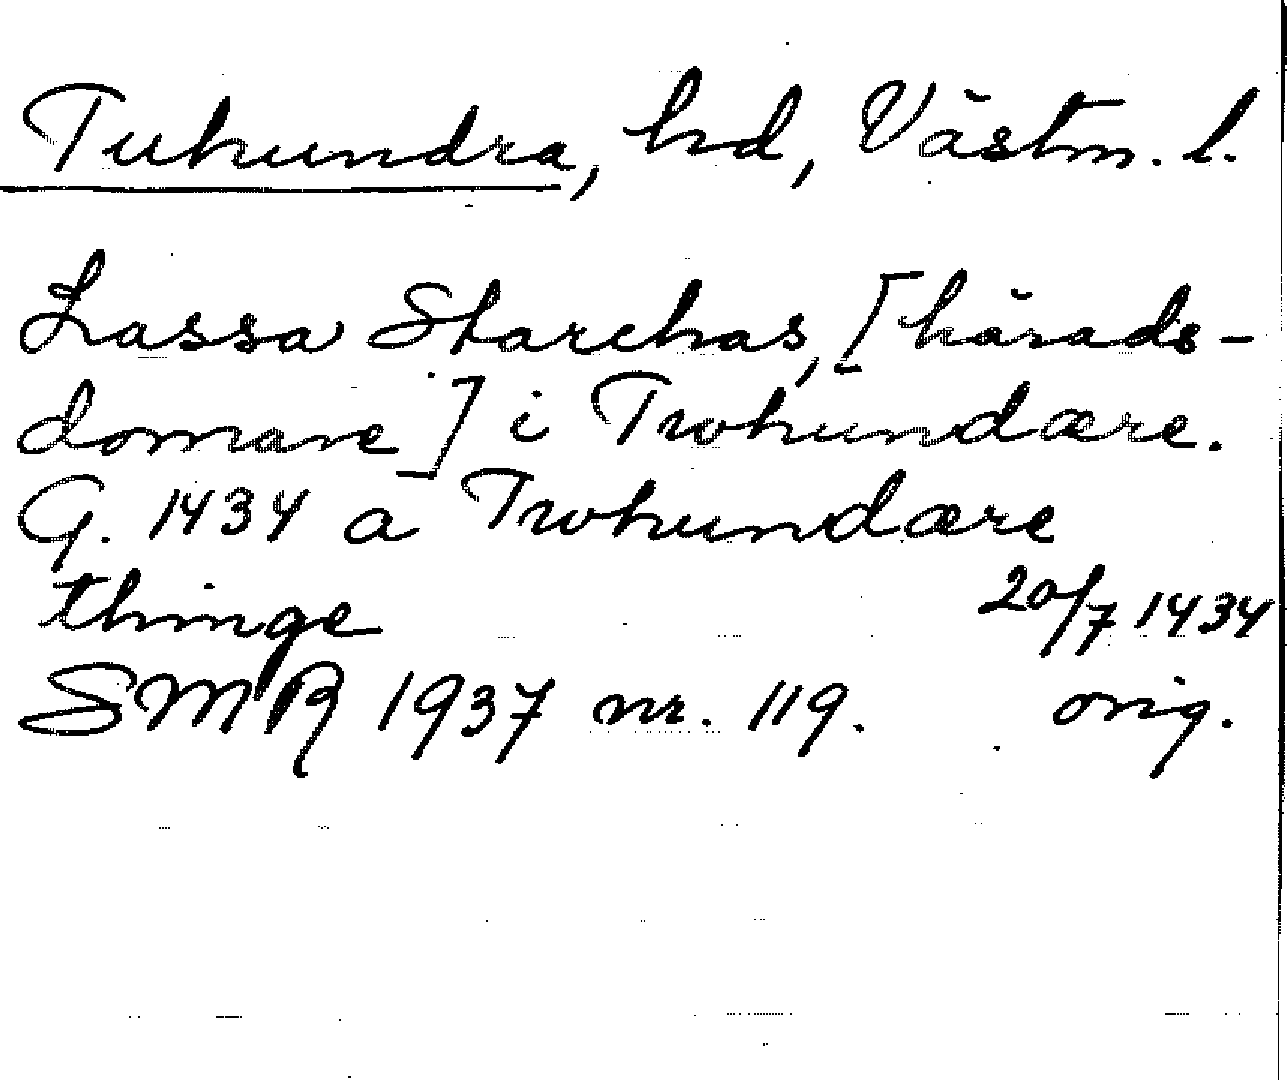 Tuhundra, hd, Västm. l.
Lassa Starehas, [härads-
domare] i Twhundære.
G. 1434 a Twhundære
thinge 20/7 1434
SMR 1937 nr. 119. orig.